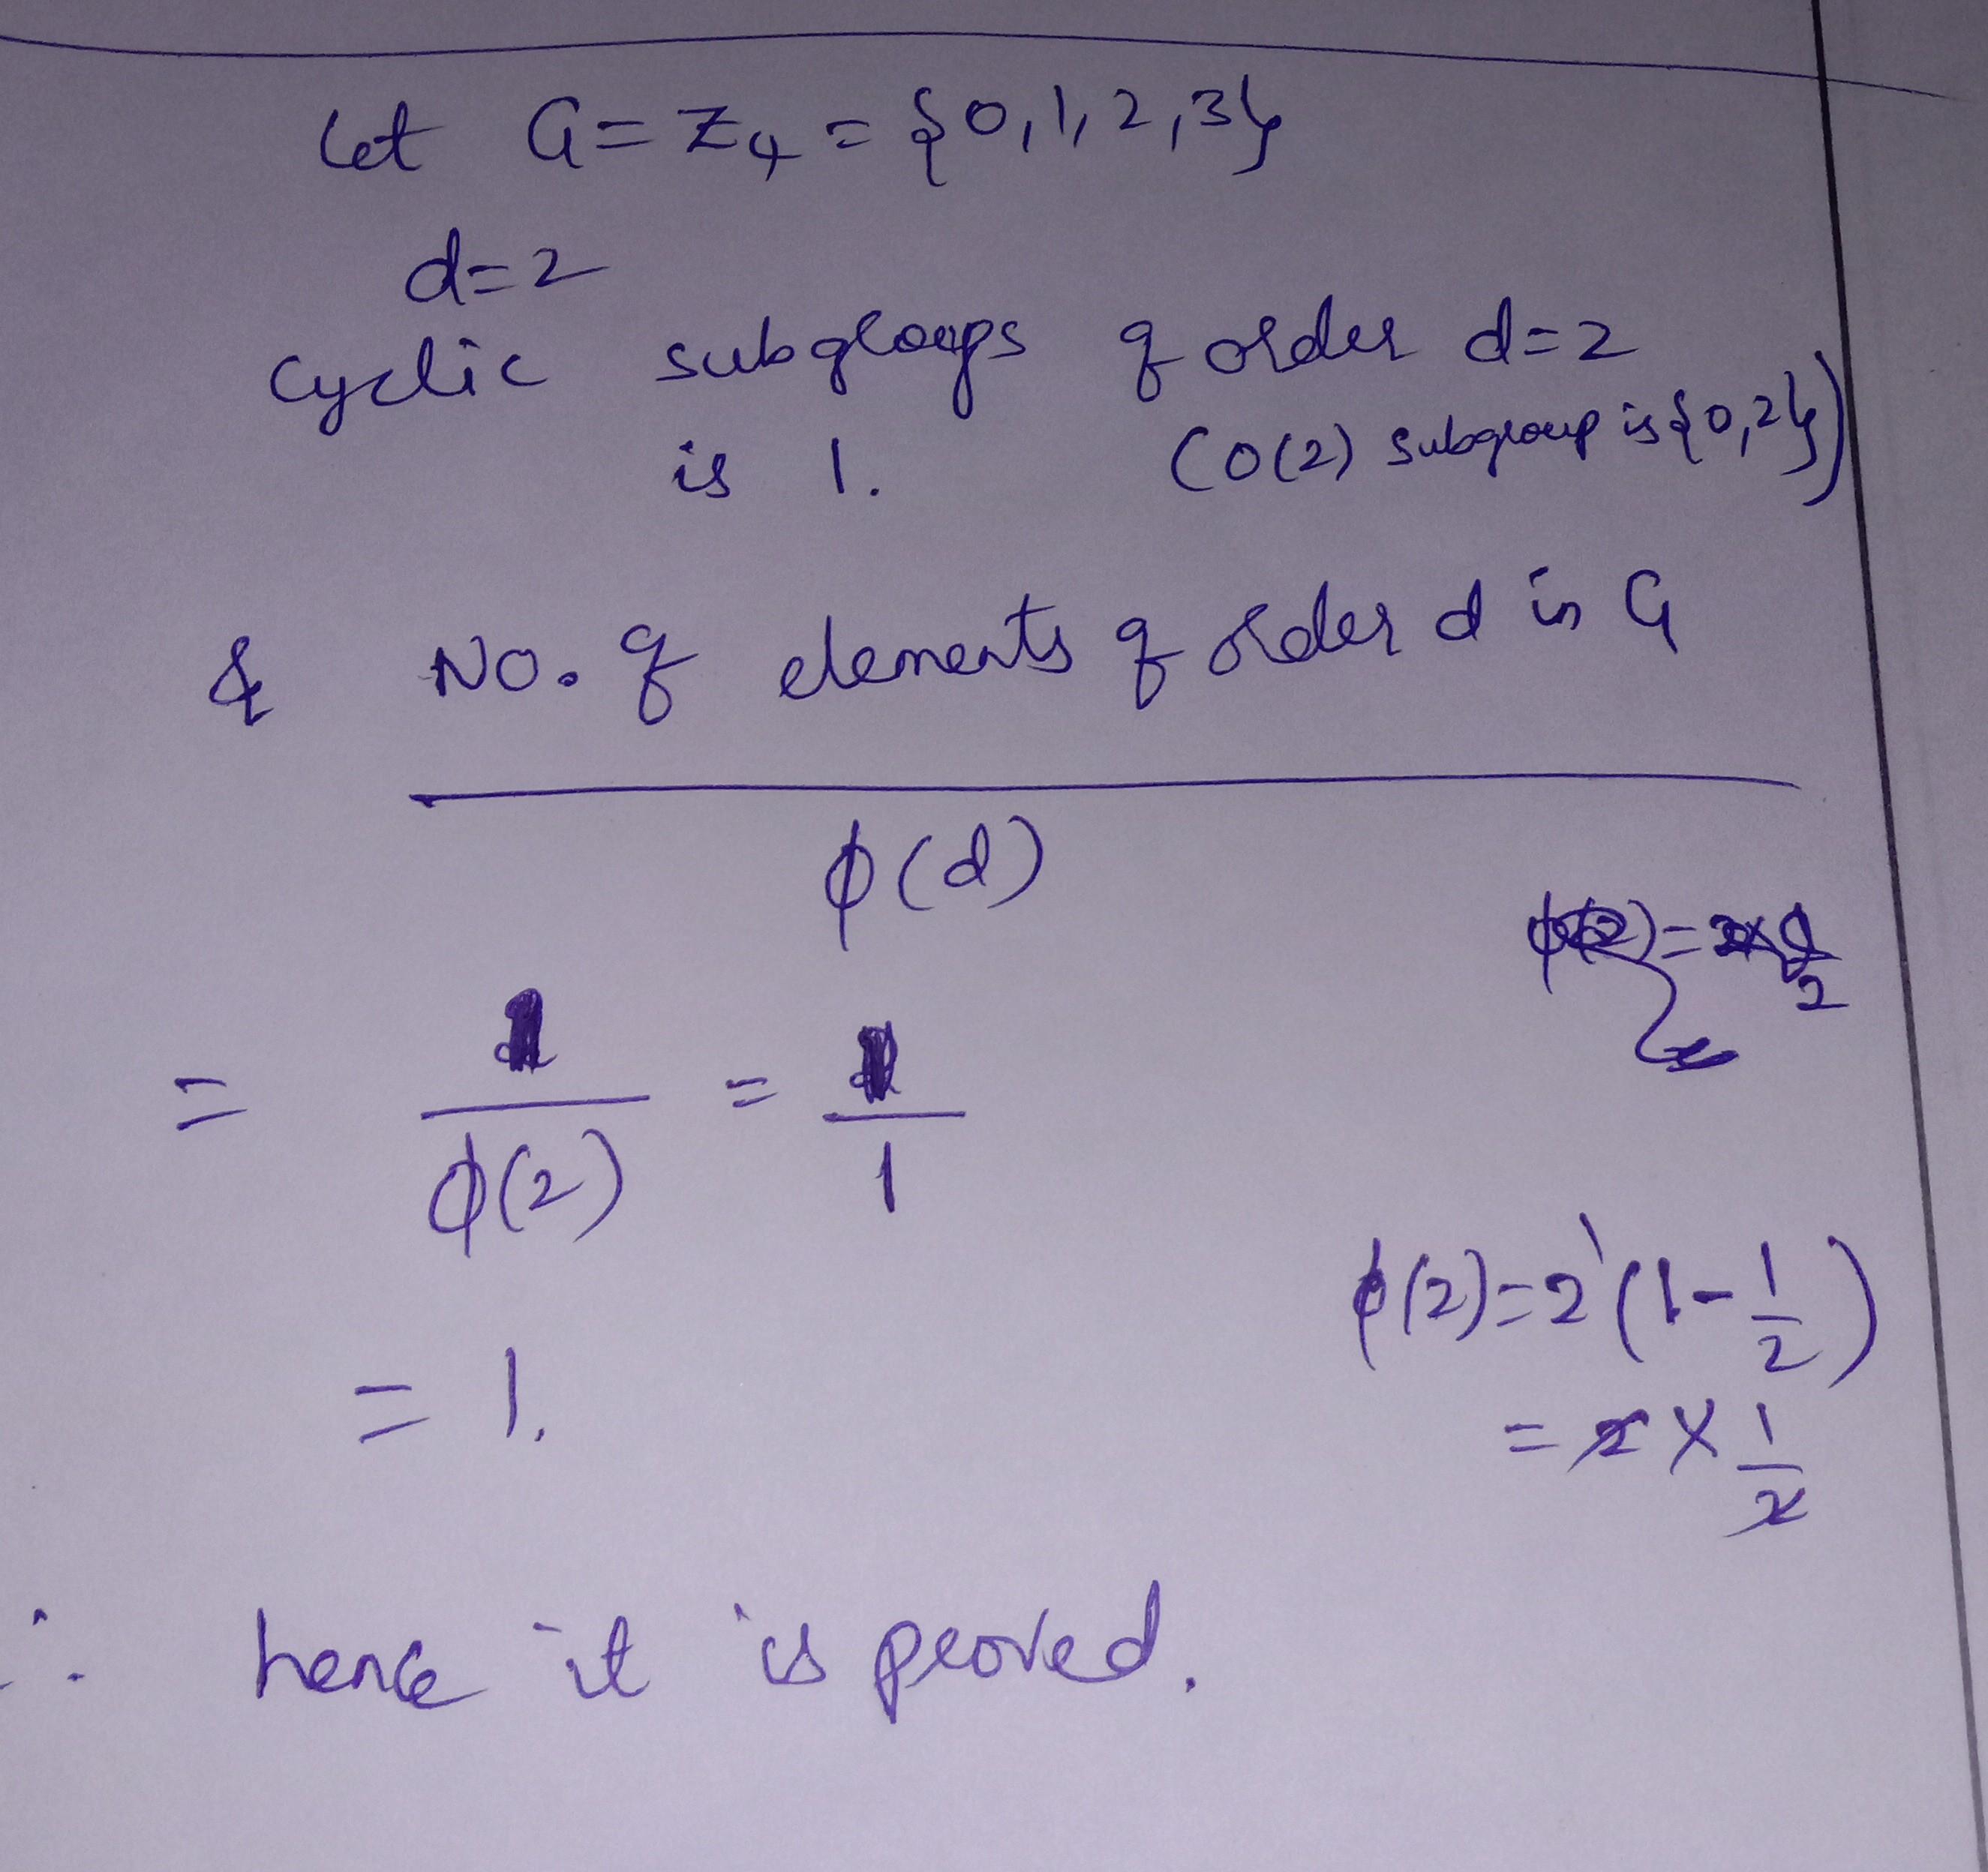 Let G = Z4 = {0,1,2,3}
d=2
cyclic subgroups of order d=2
is 1. (O(2) subgroup is {0,2})
& No. of elements of order d in G
ϕ(d)
= 1/ϕ(2) = 1/1
ϕ(2)=2¹(1-1/2)
= 1.
= 2 X 1/2
∴ hence it is proved.